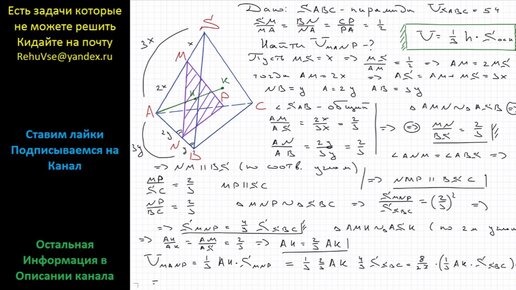 Есть задачи которые
не можете решить
Кидайте на почту
RehuVse@yandex.ru
Ставим лайки
Подписываемся на
Канал
Остальная
Информация в
Описании канала
S
3x
x
M
K
H
P
A
C
2x
2y
N
y
3y
B
Дано: SABC - пирамида V_SABC = 54
SM/MA = BN/NA = CP/PA = 1/2
Найти V_MANP - ?
V = 1/3 h · S осн
Пусть MS = x => MS/AM = 1/2 => AM = 2MS
тогда AM = 2x => AS = AM + MS = 3x
NB = y A = 2y AB = 3y
∠SAB - общий
AM/AS = 2x/3x = 2/3
AN/AB = 2y/3y = 2/3
=> ΔAMN ∾ ΔASB =>
=> MN/BS = 2/3
∠ANM = ∠ABS =>
=> NM || BS (по соотв. углам)
MP/SC = 2/3 MP || SC
=> NMP || BSC
NP/BC = 2/3 ΔMNP ∾ ΔSBC => S_MNP/S_SBC = (2/3)²
=> S_MNP = 4/9 S_SBC ΔAMH ∾ ΔASK (по 2м углам)
=> AH/AK = AM/AS = 2/3 => AH = 2/3 AK
V_MANP = 1/3 AH · S_MNP = 1/3 2/3 AK 4/9 S_SBC = 8/27 · (1/3 AK · S_SBC)
=